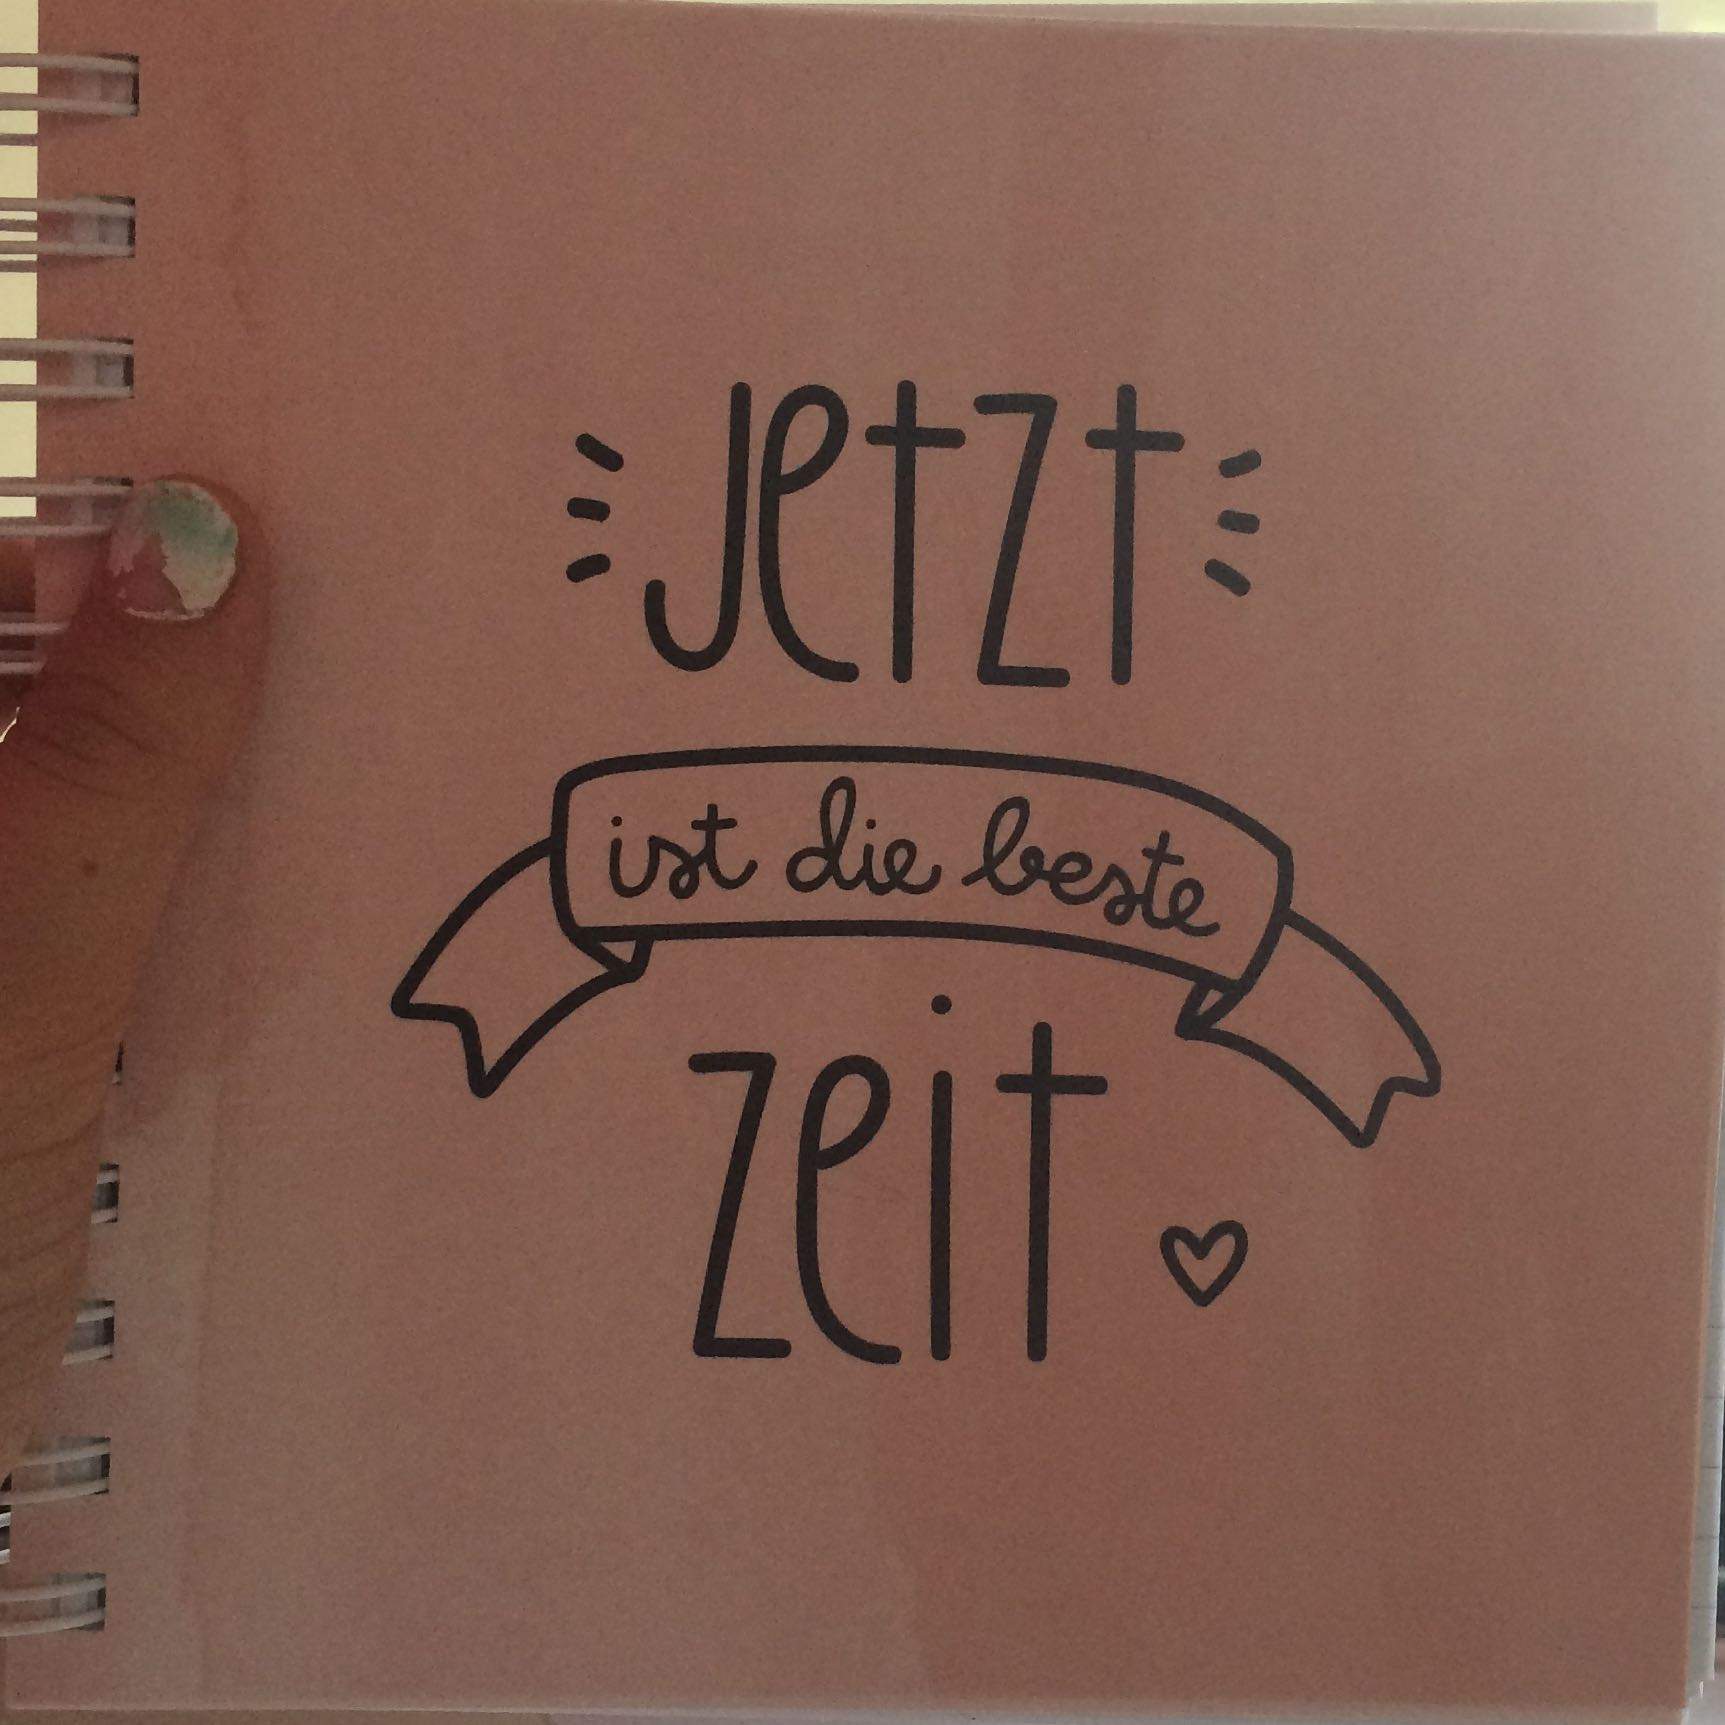 Jetzt
ist die beste
Zeit